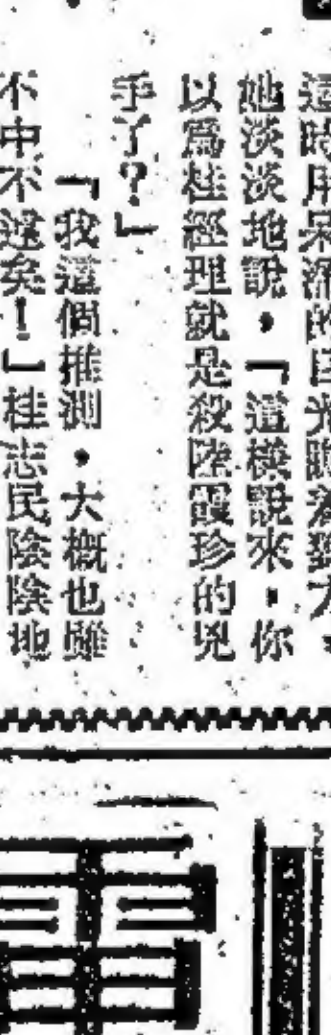 這時用呆滯的目光瞧着
她淡淡地說，「這樣說來，你
以爲桂經理就是殺陸霞珍的兇
手了？」
「我這個推測，大概也雖
不中不遠矣！」桂志民陰陰地